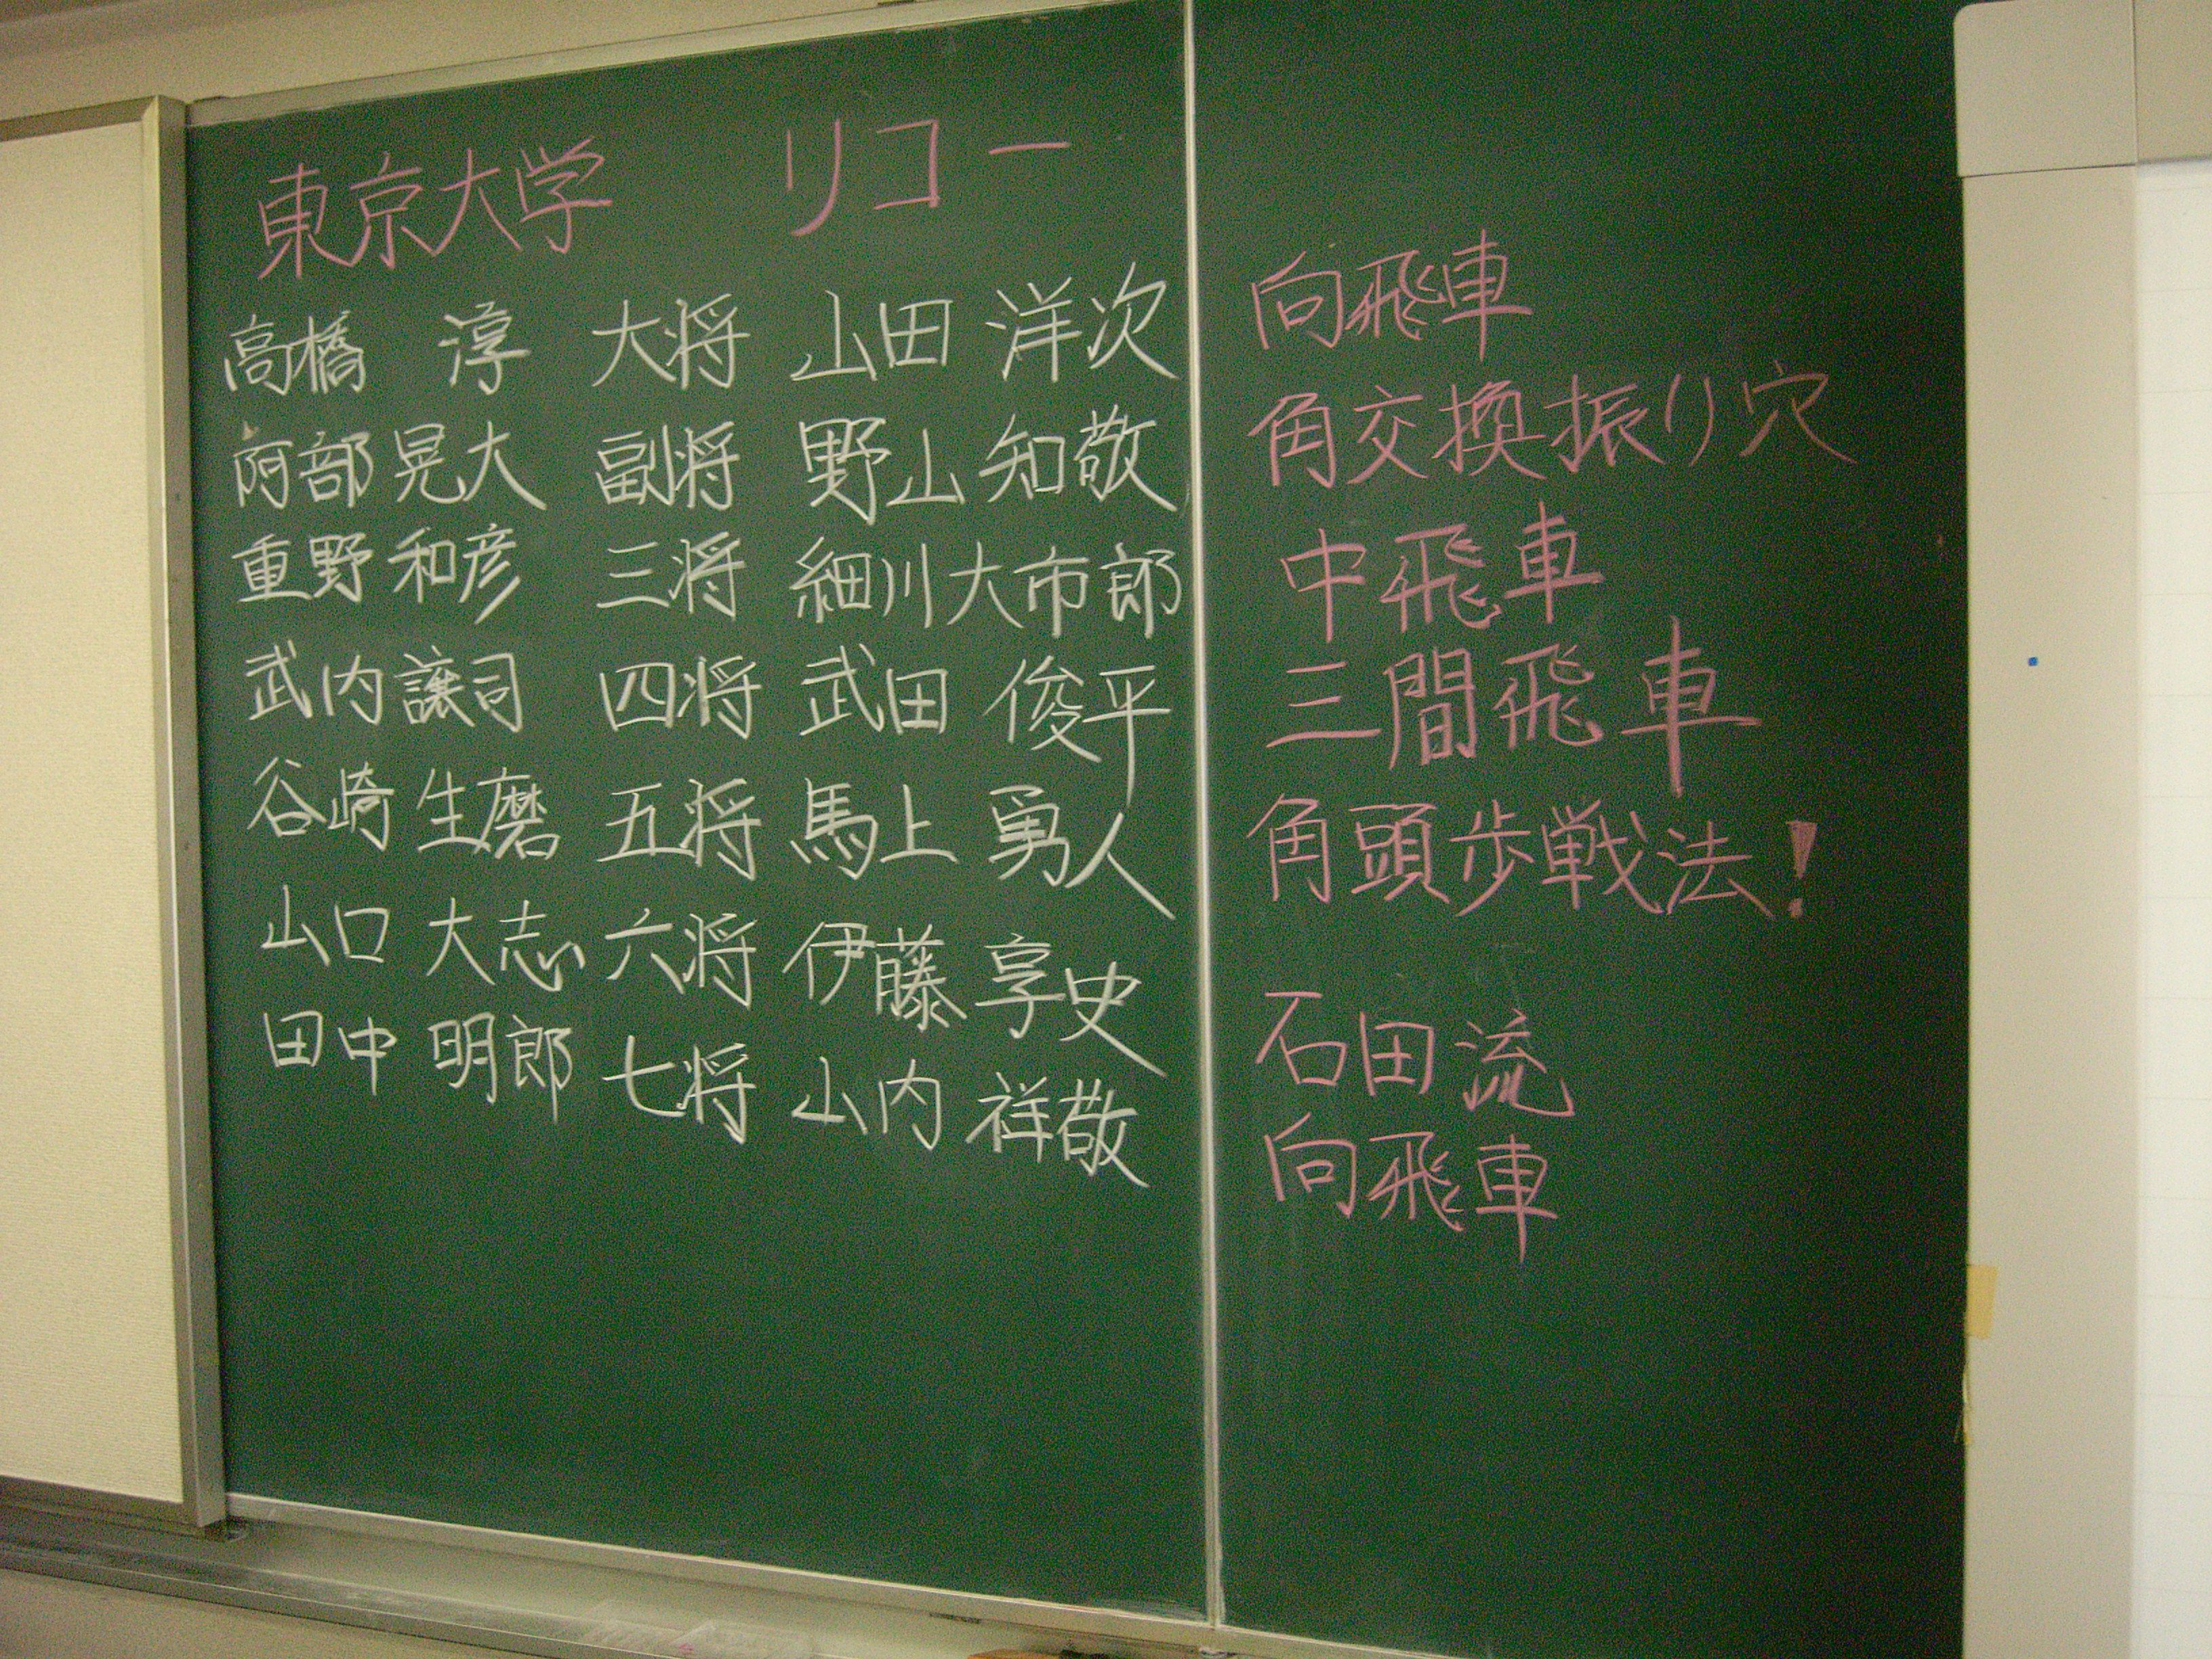 東京大学 リコー
高橋 淳 大将 山田 洋次 向飛車
阿部 晃大 副将 野山 知敬 角交換振り穴
重野 和彦 三将 細川 大市郎 中飛車
武内 譲司 四将 武田 俊平 三間飛車
谷崎 生磨 五将 馬上 勇人 角頭歩戦法!
山口 大志 六将 伊藤 享史 石田流
田中 明郎 七将 山内 祥敬 向飛車